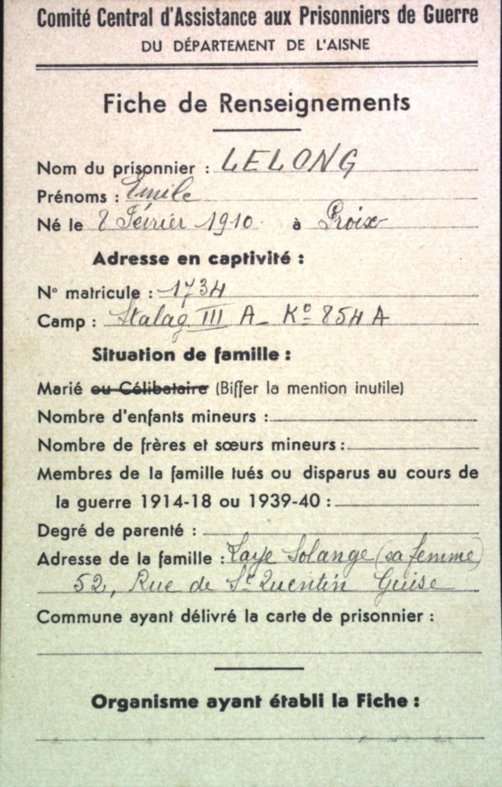 Comité Central d'Assistance aux Prisonniers de Guerre
DU DÉPARTEMENT DE L'AISNE
Fiche de Renseignements
Nom du prisonnier : LELONG
Prénoms : Emile
Né le 8 Février 1910 à Proix
Adresse en captivité :
N° matricule : 1734
Camp : Stalag III A - Ko 854 A
Situation de famille :
Marié ou Célibataire (Biffer la mention inutile)
Nombre d'enfants mineurs :
Nombre de frères et sœurs mineurs :
Membres de la famille tués ou disparus au cours de
la guerre 1914-18 ou 1939-40 :
Degré de parenté :
Adresse de la famille : Solange (sa femme)
52, Rue de St Quentin Guise
Commune ayant délivré la carte de prisonnier :
Organisme ayant établi la Fiche :